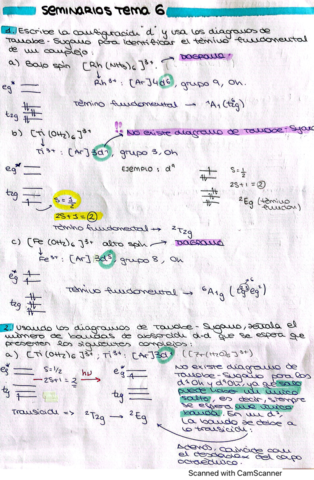 SEMINARIOS TEMA 6
1. Escribe la configuración "d" y usa los diagramas de
Tanabe-Sugano para identificar el término fundamental
de un complejo:
a) Bajo spin [Rh(NH3)6]3+ → DIAGRAMA
Rh3+: [Ar]4d6, grupo 9, Oh.
eg*
t2g
Término fundamental → 1A1 (t2g)
b) [Ti(OH2)6]3+ → !! No existe diagrama de Tanabe-Sugano
Ti3+: [Ar]3d1, grupo 3, Oh
EJEMPLO: d9
eg*
S=1/2
2S+1=2
t2g
S=1/2
2Eg (término
2S+1=2
Término fundamental → 2T2g
c) [Fe(OH2)6]3+ alto spin → DIAGRAMA
Fe3+: [Ar]3d5 grupo 8, Oh
eg
t2g
Término fundamental → 6A1g
2. Usando los diagramas de Tanabe-Sugano, señala el
número de bandas de absorción d-d que se espera que
presenten los siguientes complejos:
a) [Ti(OH2)6]3+, Ti3+: [Ar]3d1
eg*
S=1/2
2S+1=2
hν
eg*
t2g
t2g
Transición => 2T2g → 2Eg
No existe diagrama de
Tanabe-Sugano para los
d1 Oh y d9 Oh, ya que solo
puede haber un único
salto, es decir, siempre
se espera una única
banda. En un d1
la banda se debe a
la transición:
Además, coincide con
el desdoble del campo
Scanned with CamScanner